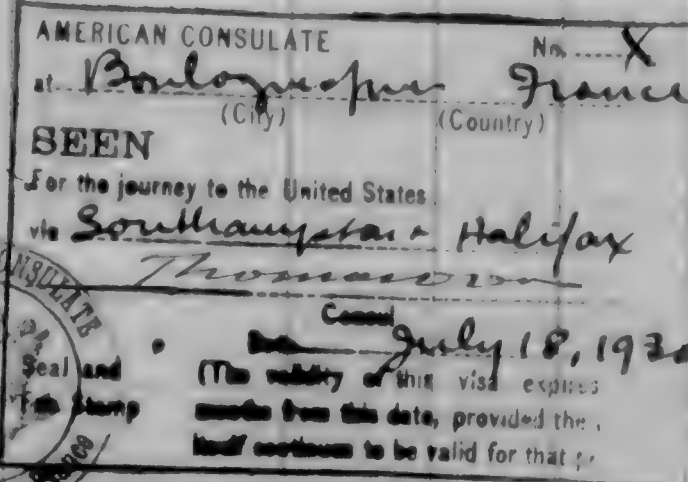 AMERICAN CONSULATE
No. X
at Boulogne sur mer France
(City) (Country)
SEEN
For the journey to the United States
via Southampton & Halifax
Consul
Date July 18, 193
Seal and
Stamp
(The validity of this visa expires
months from this date, provided the
itself continues to be valid for that
CONSULATE